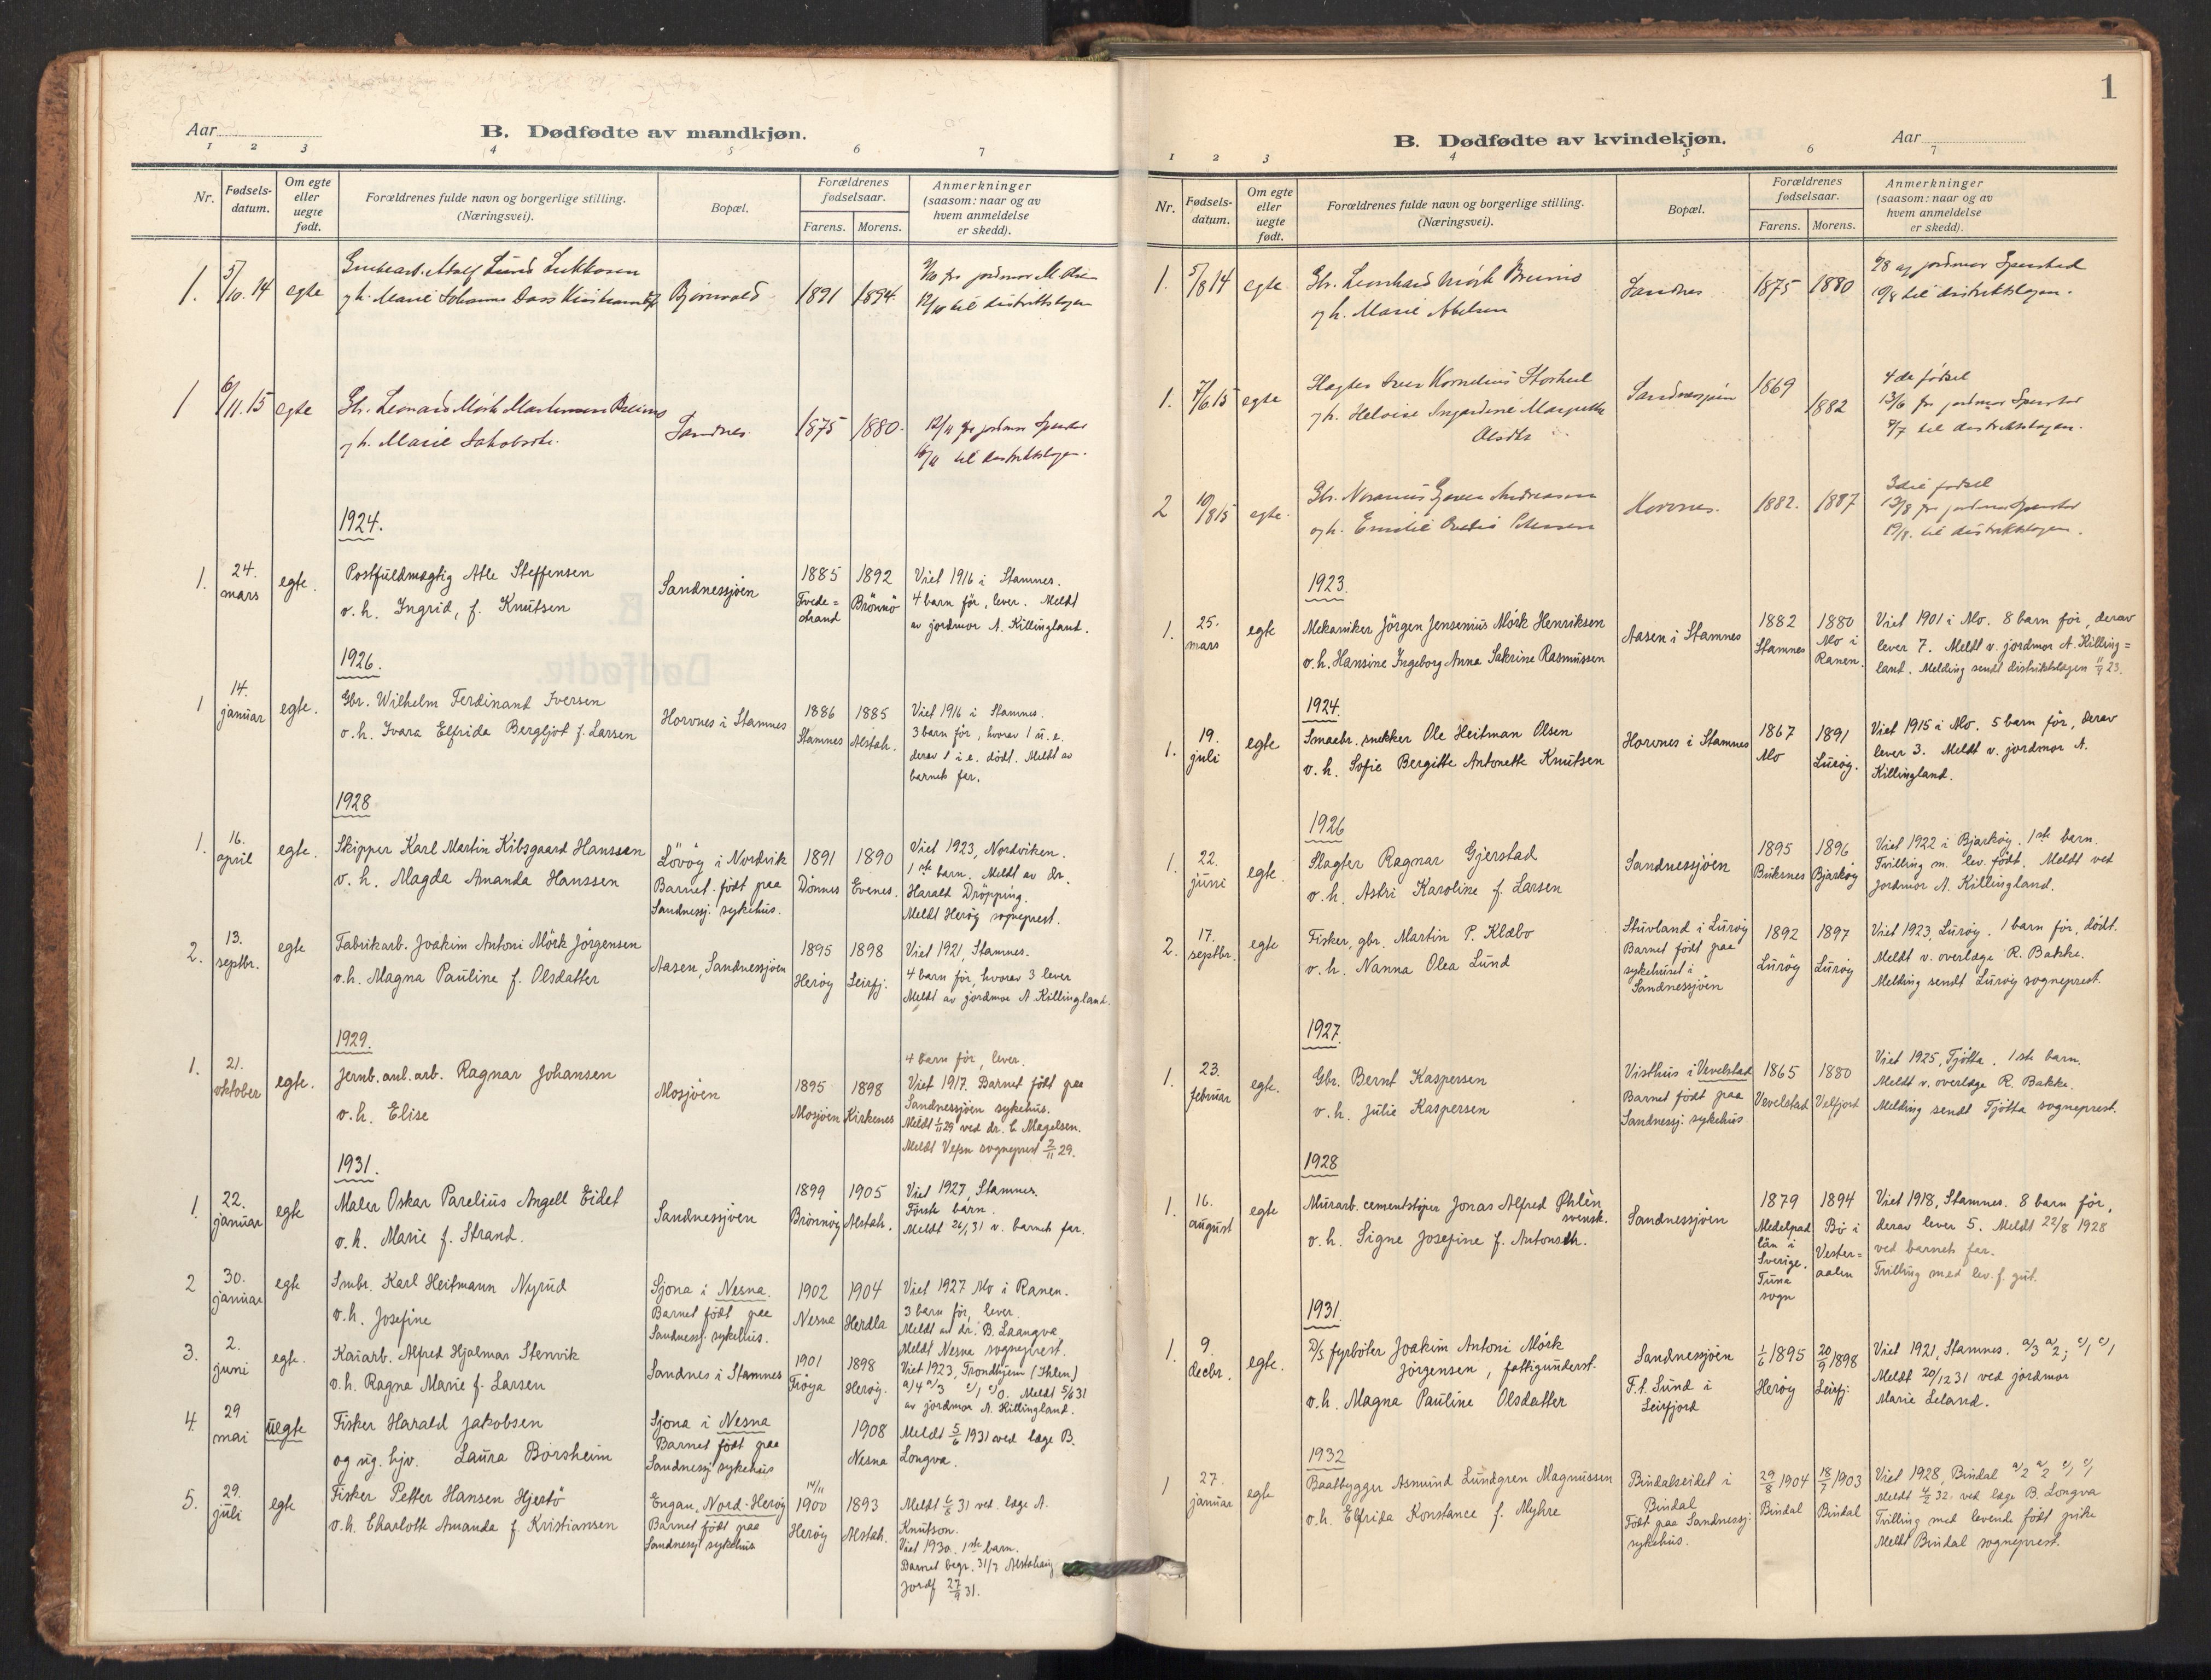 Aar
B. Dødfødte av mandkjøn.
1 2 3 4 5 6 7
Nr.
Fødsels-
datum.
Om egte
eller
uegte
født.
Forældrenes fulde navn og borgerlige stilling.
(Næringsvei).
Bopæl.
Forældrenes
fødselsaar.
Farens. Morens.
Anmerkninger
(saasom: naar og av
hvem anmeldelse
er skedd).
1. 5/10.14 egte
Adolf Lund
og h. Marie Johanna Dass
1891 1894
12/10 til distriktslægen
1 6/11.15 egte
Gbr. Leonard Mörk Martinussen Breimo
og h. Marie Jakobsdtr.
Sandnes
1875 1880.
til distriktslægen.
1924.
1. 24. mars egte.
Postfuldmægtig Atle Steffensen
o. h. Ingrid, f. Knutsen
Sandnessjøen
1885 Tvede=
strand
1892 Brönnö
Viet 1916 i Stamnes.
4 barn för, lever. Meldt
av jordmor A. Killingland.
1926.
1 14. januar egte.
Gbr. Wilhelm Ferdinand Iversen
o. h. Ivara Elfrida Bergljot f. Larsen
Horvnes i Stamnes
1886 Stamnes
1885 Alstah.
Viet 1916 i Stamnes.
3 barn för, hvorav 1 u. e.
derav 1 i e. dödt. Meldt av
barnets far.
1928
1. 16. april egte.
Skipper Karl Martin Kibsgaard Hanssen
o. h. Magda Amanda Hanssen
Lövöy i Nordvik
Barnet född paa
Sandnessj. sykehus.
1891 Dönnes
1890 Evenes.
Viet 1923, Nordviken.
1ste barn. Meldt av dr.
Harald Dröpping.
Meldt Heröy sogneprest.
2. 13. septbr. egte
Fabrikarb. Joakim Antoni Mörk Jörgensen
o. h. Magna Pauline f. Olsdatter
Aasen, Sandnessjøen
1895 Heröy
1898 Leirfj.
Viet 1921, Stamnes.
4 barn för, hvorav 3 lever
Meldt av jordmor A. Killingland.
1929.
1. 21. oktober egte.
Jernb. anl. arb. Ragnar Johansen
o. h. Elise
Mosjöen
1895 Mosjöen
1898 Kirkenes
4 barn för, lever.
Viet 1917. Barnet födt paa
Sandnessjöen sykehus.
Meldt 1/11 29 ved dr. C. Magelsen.
Meldt Vefsn sogneprest 2/11 29.
1931.
1. 22. januar egte
Maler Oskar Parelius Angell Eidet
o. h. Marie f. Strand.
Sandnessjøen
1899 Brönnöy
1905 Alstah.
Viet 1927, Stamnes.
Förste barn.
Meldt 26/1 31 v. barnets far.
2 30. januar egte
Smbr. Karl Heitmann Nyrud
o. h. Josefine
Sjona i Nesna.
Barnet födt paa
Sandnessj. sykehus.
1902 Nesna
1904 Herdla
Viet 1927 Mo i Ranen.
3 barn för, lever.
Meldt av dr. B. Laangva
Meldt Nesna sogneprest.
3. 2. juni egte.
Kaiarb. Alfred Hjalmar Stenvik
o. h. Ragna Marie f. Larsen
Sandnes i Stamnes
1901 Fröya
1898 Heröy.
Viet 1923, Trondhjem (Ihlen)
a) 4 a/3 c/1 c/0. Meldt 5/6 31
av jordmor A. Killingland.
4. 29 mai uegte
Fisker Harald Jakobsen
og ug. hjv. Laura Börsheim
Sjona i Nesna
Barnet födt paa
Sandnessj. sykehus
1908 Nesna
Meldt 5/6 1931 ved læge B.
Longva.
5. 29. juli egte
Fisker Petter Hansen Hjertö
o. h. Charlotte Amanda f. Kristiansen
Engan, Nord-Heröy
Barnet födt paa
Sandnessj sykehus
14/11 1900 Heröy
1893 Alstah.
Meldt 1/8 31 ved. læge A.
Knutson.
Viet 1930. 1ste barn.
Barnet begr. 31/7 Alstahaug
Jordf 27/9 31.
1
B. Dødfødte av kvindekjøn.
Aar
1 2 3 4 5 6 7
Nr.
Fødsels-
datum.
Om egte
eller
uegte
født.
Forældrenes fulde navn og borgerlige stilling.
(Næringsvei).
Bopæl.
Forældrenes
fødselsaar.
Farens. Morens.
Anmerkninger
(saasom: naar og av
hvem anmeldelse
er skedd).
1. 5/8 14 egte
Gbr. Leonhard Mörk Breimo
og h. Marie Abelsen
Sandnes
1875 1880
9/8 av jordmor Spenstad
10/8 til distriktslægen.
1. 7/6.15 egte
Slagter Iver Kornelius Storheil
og h. Heloise Ingardine Margrethe
Olsdtr
Sandnessjøen
1869
1882
4de födsel
13/6 fra jordmor Spenstad
9/7 til distriktslægen.
2 10/8 15 egte.
Gbr. Andreassen
og h. Emilie Petersen
Horvnes.
1882. 1887
3die födsel
13/8 fra jordmor Spenstad
19/8. til distriktslægen.
1923.
1. 25. mars egte
Mekaniker Jörgen Jensenius Mörk Henriksen
o. h. Hansine Ingeborg Anna Sakrine Rasmussen
Aasen i Stamnes
1882 Stamnes
1880 Mo i
Ranen.
Viet 1901 i Mo. 8 barn för, derav
lever 7. Meldt v. jordmor A. Killing=
land. Melding sendt distriktslægen 11/9 23.
1924.
1. 19. juli egte
Smaabr. snekker Ole Heitman Olsen
o. h. Sofie Bergitte Antonette Knutsen
Horvnes i Stamnes
1867 Mo
1891 Luröy.
Viet 1915 i Mo. 5 barn för, derav
lever 3. Meldt v. jordmor A.
Killingland.
1926
1. 22. juni egte.
Slagter Ragnar Gjerstad
o. h. Astri Karoline f. Larsen
Sandnessjøen
1895 Buksnes
1896 Bjarköy
Viet 1922 i Bjarköy. 1ste barn.
Tvilling m. lev. födt. Meldt ved
jordmor A. Killingland.
2. 17. septbr. egte
Fisker, gbr. Martin P. Klæbo
o. h. Nanna Olea Lund
Stuvland i Luröy
Barnet födt paa
sykehuset i
Sandnessjöen
1892 Luröy
1897 Luröy
Viet 1923, Luröy. 1 barn för, dödt.
Meldt v. overlæge R. Bakke.
Melding sendt Luröy sogneprest.
1927.
1. 23. februar egte.
Gbr. Bernt Kaspersen
o. h. Julie Kaspersen
Visthus i Vevelstad
Barnet födt paa
Sandnessj. sykehus
1865 Vevelstad
1880 Velfjord
Viet 1925, Tjötta. 1ste barn.
Meldt v. overlæge R. Bakke.
Melding sendt Tjötta sogneprest.
1928
1. 16. august egte
Murarb. cementstöper Jonas Alfred Øhlén
svensk.
o. h. Signe Josefine f. Antonsdtr.
Sandnessjøen
1879 Medelpad
län i
Sverige.
Tuna
sogn
1894 Bö i
Vester=
aalen
Viet 1918, Stamnes. 8 barn för,
derav lever 5. Meldt 22/8 1928
ved barnets far.
Tvilling med lev. f. gut.
1931.
1. 9. decbr. egte.
D/S fyrböter Joakim Antoni Mörk
Jörgensen, fattigunderst.
o. h. Magna Pauline Olsdatter
Sandnessjøen
F. t. Sund i
Leirfjord
1/6 1895 Heröy
20/9 1898 Leirfj.
Viet 1921, Stamnes. a/3 a/2; c/1 c/1
Meldt 20/12 31 ved jordmor
Marie Leland.
1932
1 27. januar egte
Baatbygger Asmund Lundgren Magnussen
o. h. Elfrida Konstance f. Myhre
Bindalseidet i
Bindal
Födt paa Sandnessj.
sykehus.
29/8 1904 Bindal
18/7 1903 Bindal
Viet 1928, Bindal a/2 a/2 c/1 c/1
Meldt 4/2 32. ved læge B. Longva
Tvilling med levende födt pike
Meldt Bindal sogneprest.